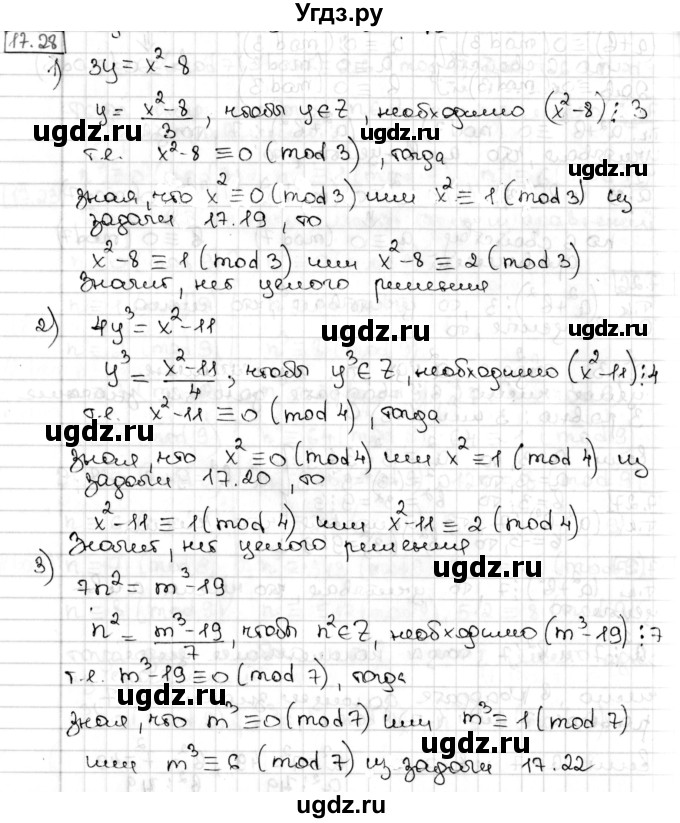 Угдз.ру
17.28
1) 3y = x²-8
y = (x²-8)/3, чтобы y∈Z, необходимо (x²-8)⋮3
т.е. x²-8 ≡ 0 (mod 3), тогда
зная, что x² ≡ 0 (mod 3) или x² ≡ 1 (mod 3) из
задачи 17.19, то
x²-8 ≡ 1 (mod 3) или x²-8 ≡ 2 (mod 3)
Значит, нет целого решения
2) 4y³ = x²-11
y³ = (x²-11)/4, чтобы y³∈Z, необходимо (x²-11)⋮4
т.е. x²-11 ≡ 0 (mod 4), тогда
зная, что x² ≡ 0 (mod 4) или x² ≡ 1 (mod 4) из
задачи 17.20, то
x²-11 ≡ 1 (mod 4) или x²-11 ≡ 2 (mod 4)
Значит, нет целого решения
3) 7n² = m³-19
n² = (m³-19)/7, чтобы n²∈Z, необходимо (m³-19)⋮7
т.е. m³-19 ≡ 0 (mod 7), тогда
зная, что m³ ≡ 0 (mod 7) или m³ ≡ 1 (mod 7)
или m³ ≡ 6 (mod 7) из задачи 17.22
ugdz.ru
ugdz.ru
ugdz.ru
ugdz.ru
ugdz.ru
ugdz.ru
ugdz.ru
ugdz.ru
ugdz.ru
ugdz.ru
ugdz.ru
ugdz.ru
ugdz.ru